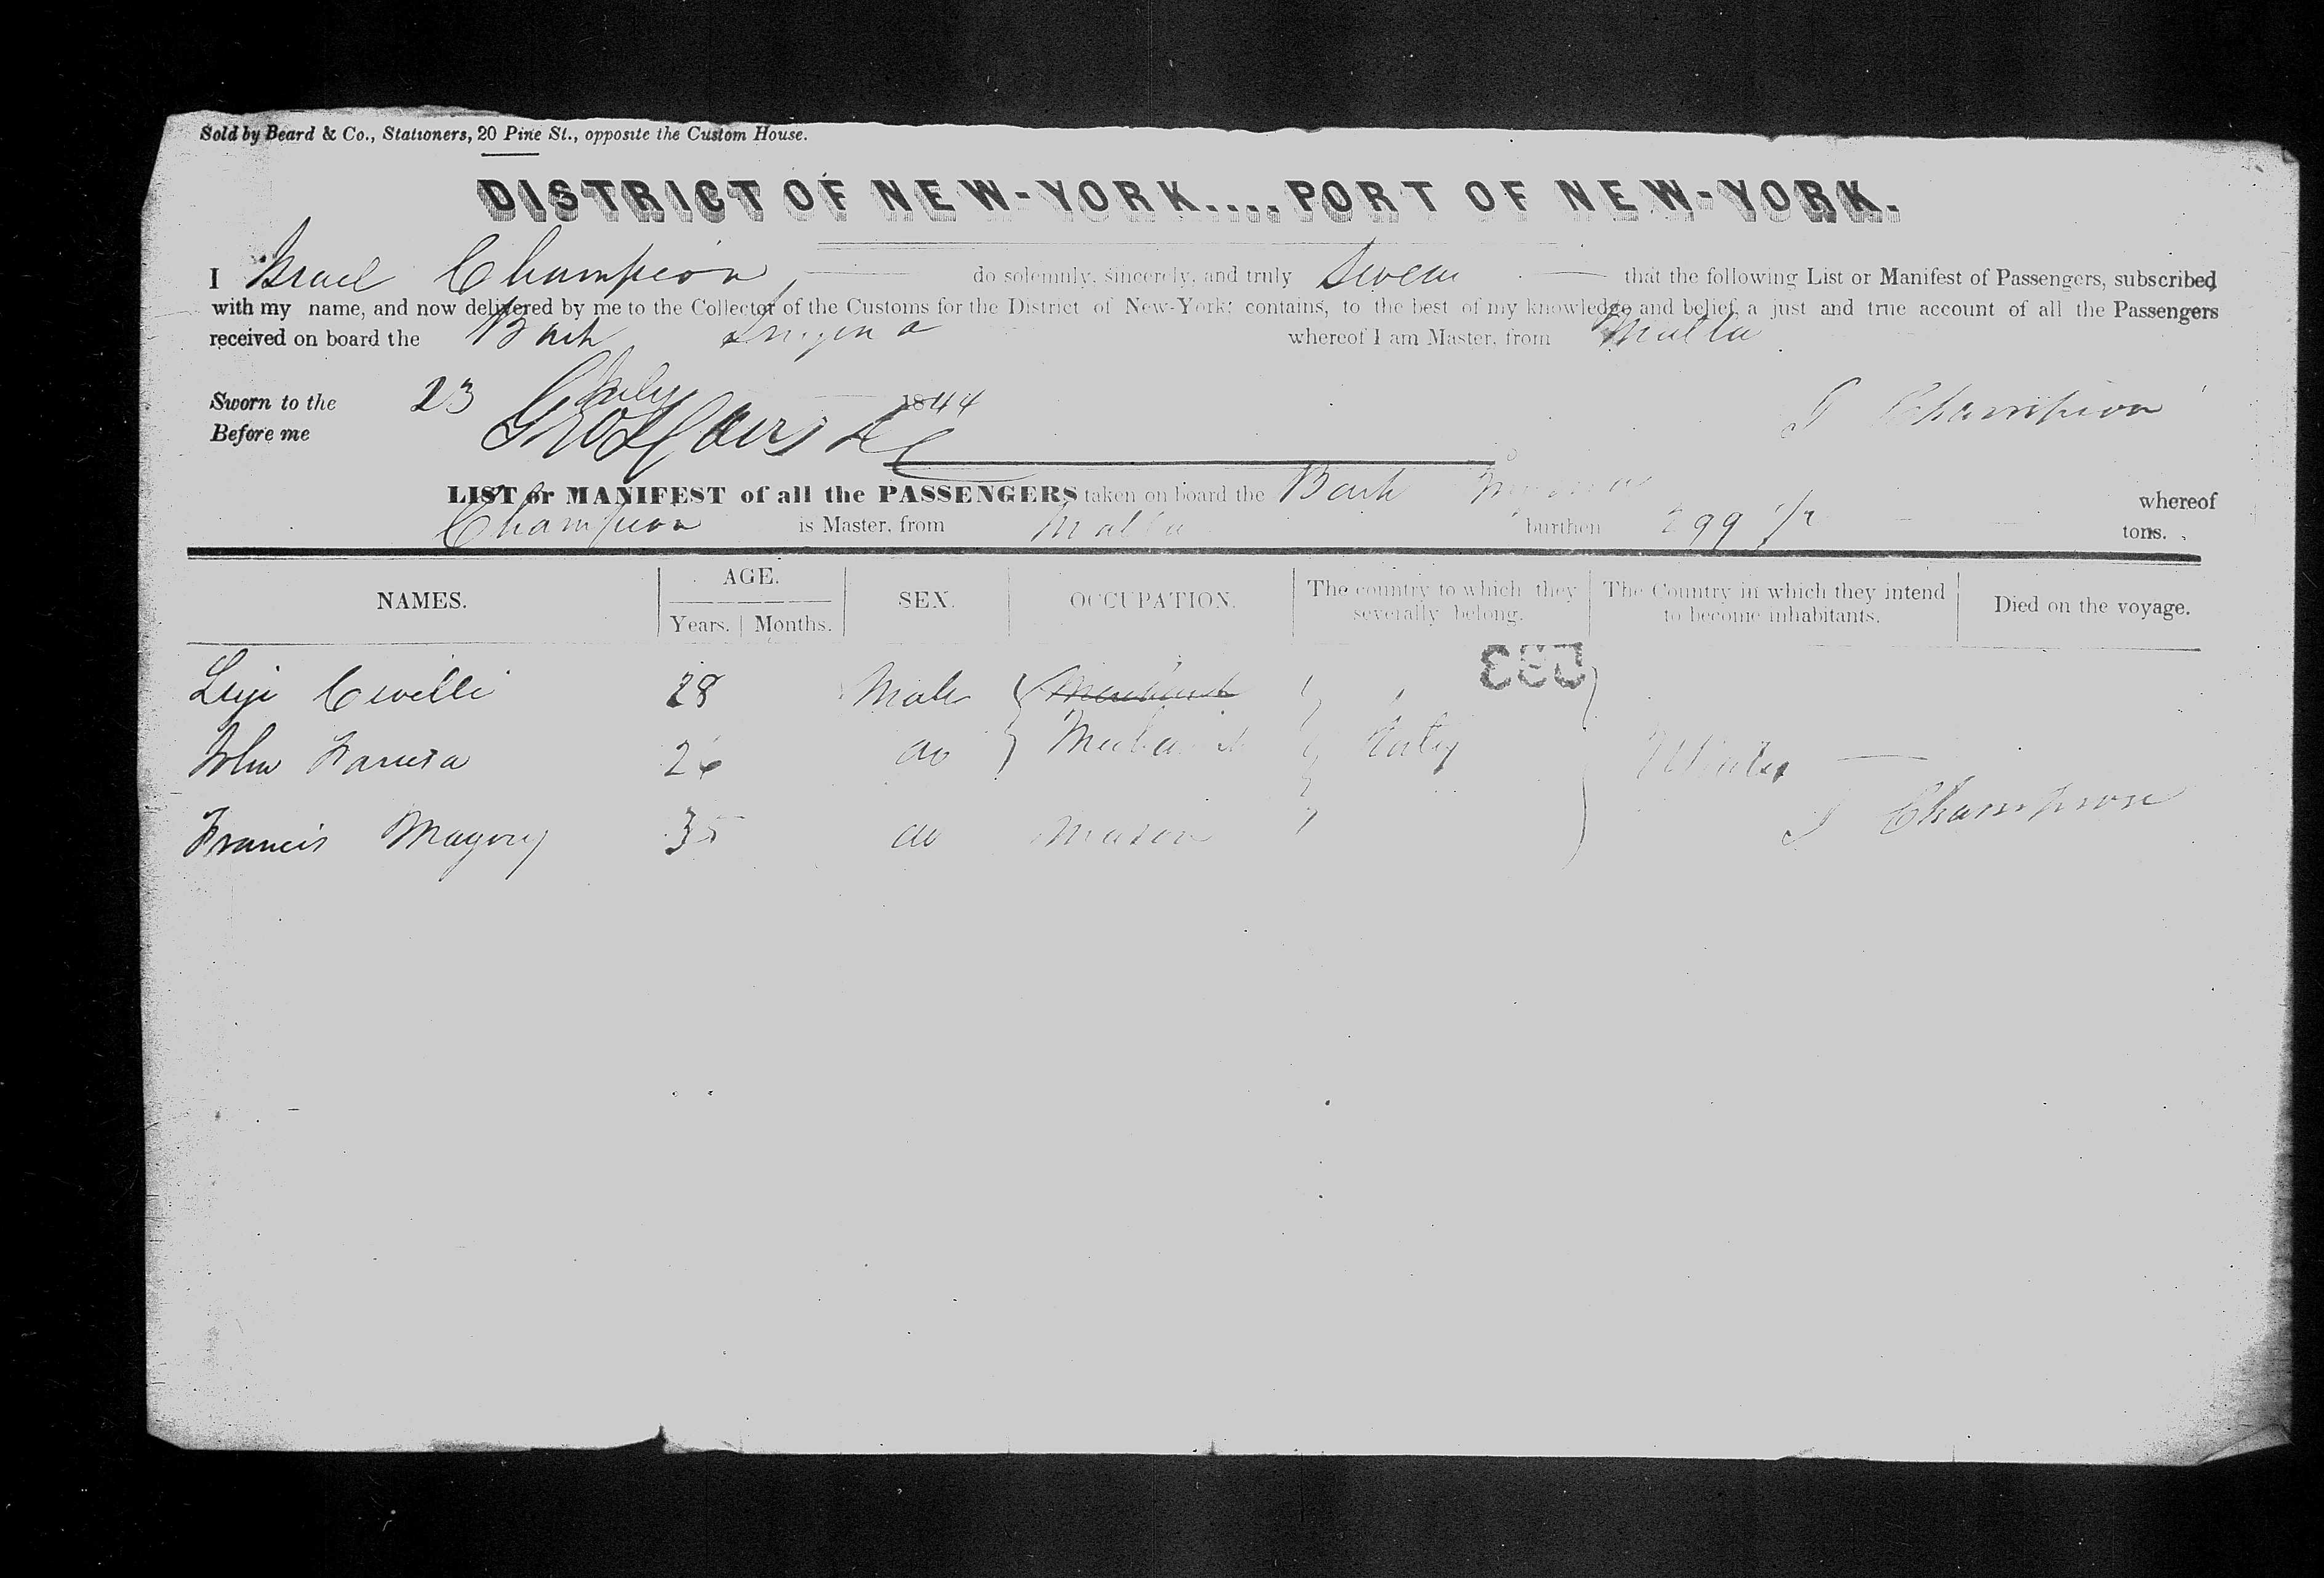 Sold by Beard & Co., Stationers, 20 Pine St., opposite the Custom House.
DISTRICT OF NEW-YORK....PORT OF NEW-YORK.
I Israel Champion, do solemnly, sincerely, and truly Swear that the following List or Manifest of Passengers, subscribed
with my name, and now delivered by me to the Collector of the Customs for the District of New-York; contains, to the best of my knowledge and belief, a just and true account of all the Passengers
received on board the Bark whereof I am Master, from Malta
Sworn to the 23 July 1844
I Champion
Before me
LIST or MANIFEST of all the PASSENGERS taken on board the Bark whereof
Champion is Master, from Malta burthen 299 tons.
NAMES. AGE. SEX. OCCUPATION. The country to which they severally belong. The Country in which they intend to become inhabitants. Died on the voyage.
Years. Months.
Luigi 28 Male Merchant
John 26 do Italy
Francis 35 do Mason
I Champion